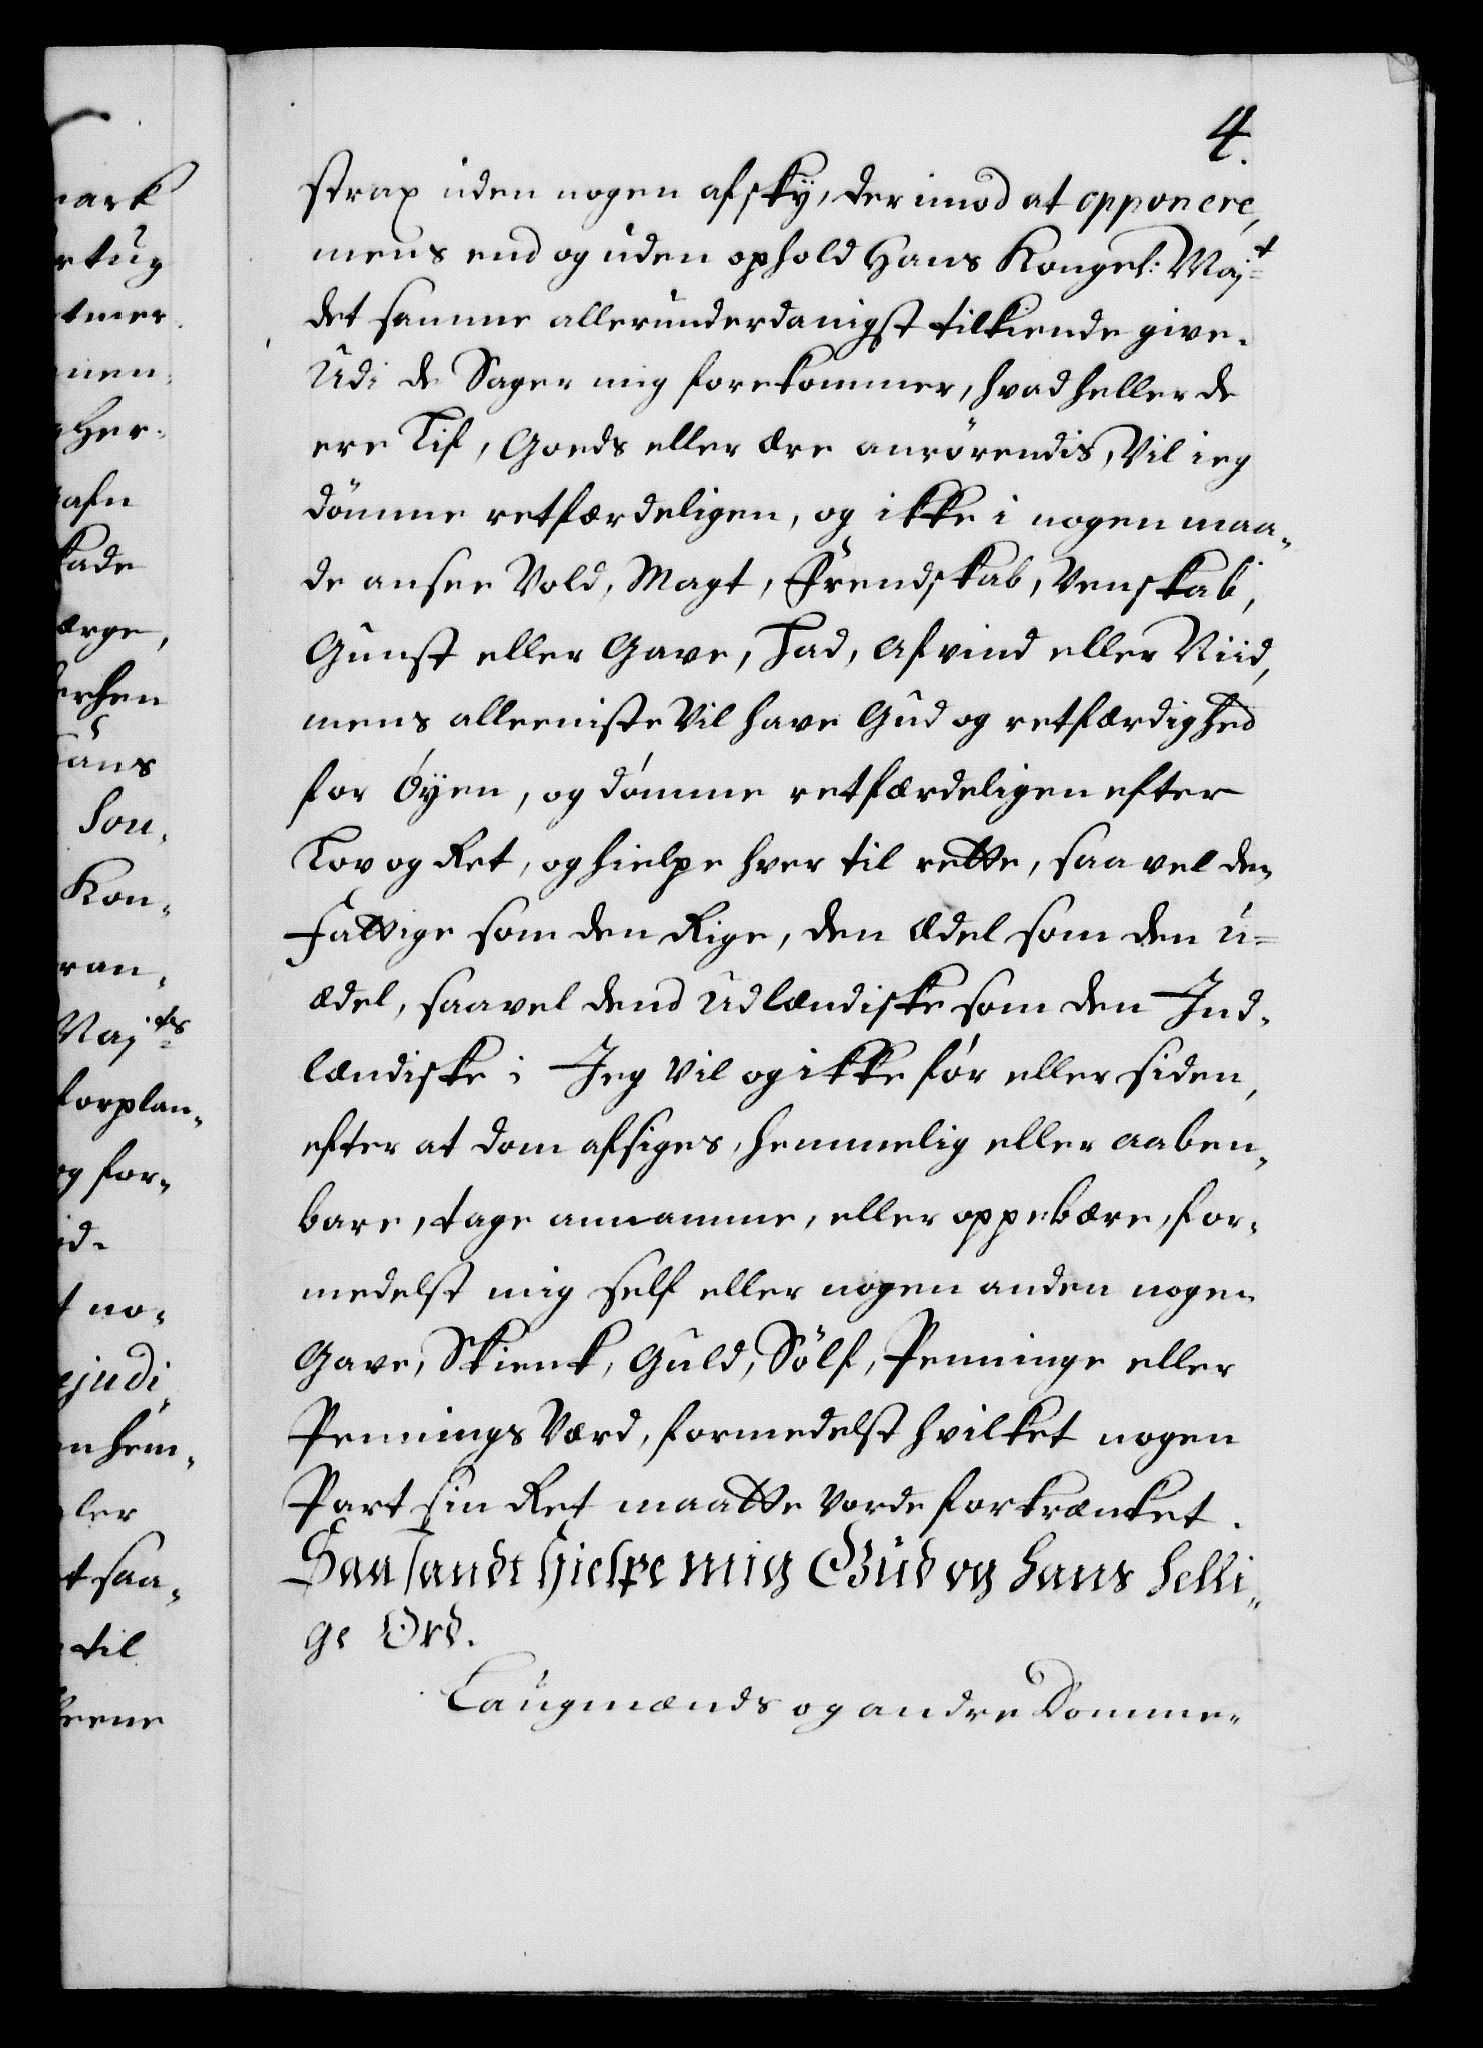 4.
mark
rtug
tmer.
men,
gher-
afn
kade
erge,
erhen
hans
Son-
Kon-
ran,
Majts
forplan-
og for-
id-
t no-
ejudi,,
nhem-
ler
t saa-
til
keene
strax uden nogen afsky, der imod at opponere,
mens end og uden ophold Hans Kongel: Majt
det samme allerunderdanigst tilkiende give.
Udi de Sager mig forekommer, hvad heller de
ere Lif, Goeds eller Ære anrörendis, Vil ieg
dömme retfærdeligen, og ikke i nogen maa-
de ansee Vold, Magt, Frendskab, Venskab,
Gunst eller Gave, Had, Afvind eller Niid,
mens alleeniste Vil have Gud og retfærdighed
for Öyen, og dömme retfærdeligen efter
Lov og Ret, og hielpe hver til rette, saavel den
Fattige som den Rige, den Ædel som den u=
ædel, saavel dend Udlændiske som den Ind-
lændiske; Jeg Vil og ikke för eller siden,
efter at dom afsiges, hemmelig eller aaben-
bare, tage annamme, eller oppebære, for-
medelst mig self eller nogen anden nogen
Gave, Skienk, Guld, Sölf, Penninge eller
Pennings Værd, formedelst hvilket nogen
Part sin Ret maatte vorde forkrænket.
Saa sandt hielpe mig Gud og hans helli-
ge Ord.
Laugmænds og andre Domme-